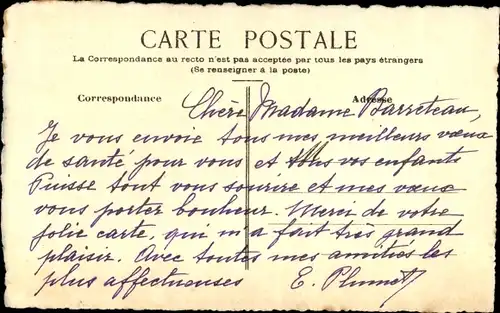 CARTE POSTALE
La Correspondance au recto n'est pas acceptée par tous les pays étrangers
(Se renseigner à la poste)
Correspondance
Adresse
Chère Madame Barreteau,
Je vous envoie tous mes meilleurs vœux
de santé pour vous et tous vos enfants
Puisse tout vous sourire et mes vœux
vous porter bonheur. Merci de votre
jolie carte qui m'a fait très grand
plaisir. Avec toutes mes amitiés les
plus affectueuses E. Plumet